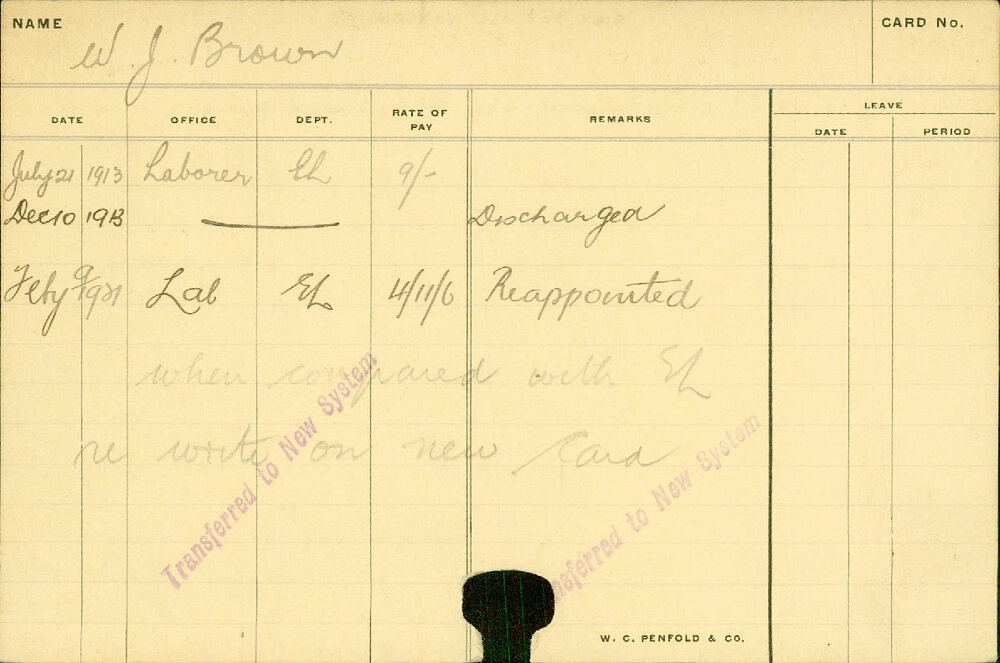 NAME W. J. Brown CARD No.
LEAVE
DATE OFFICE DEPT. RATE OF PAY REMARKS DATE PERIOD
July 21 1913 Laborer EL 9/-
Dec 10 1913 Discharged
Feby 9 1921 Lab EL 4/11/6 Reappointed
when compared with EL
re write on new Card
Transferred to New System
Transferred to New System
W. C. PENFOLD & CO.